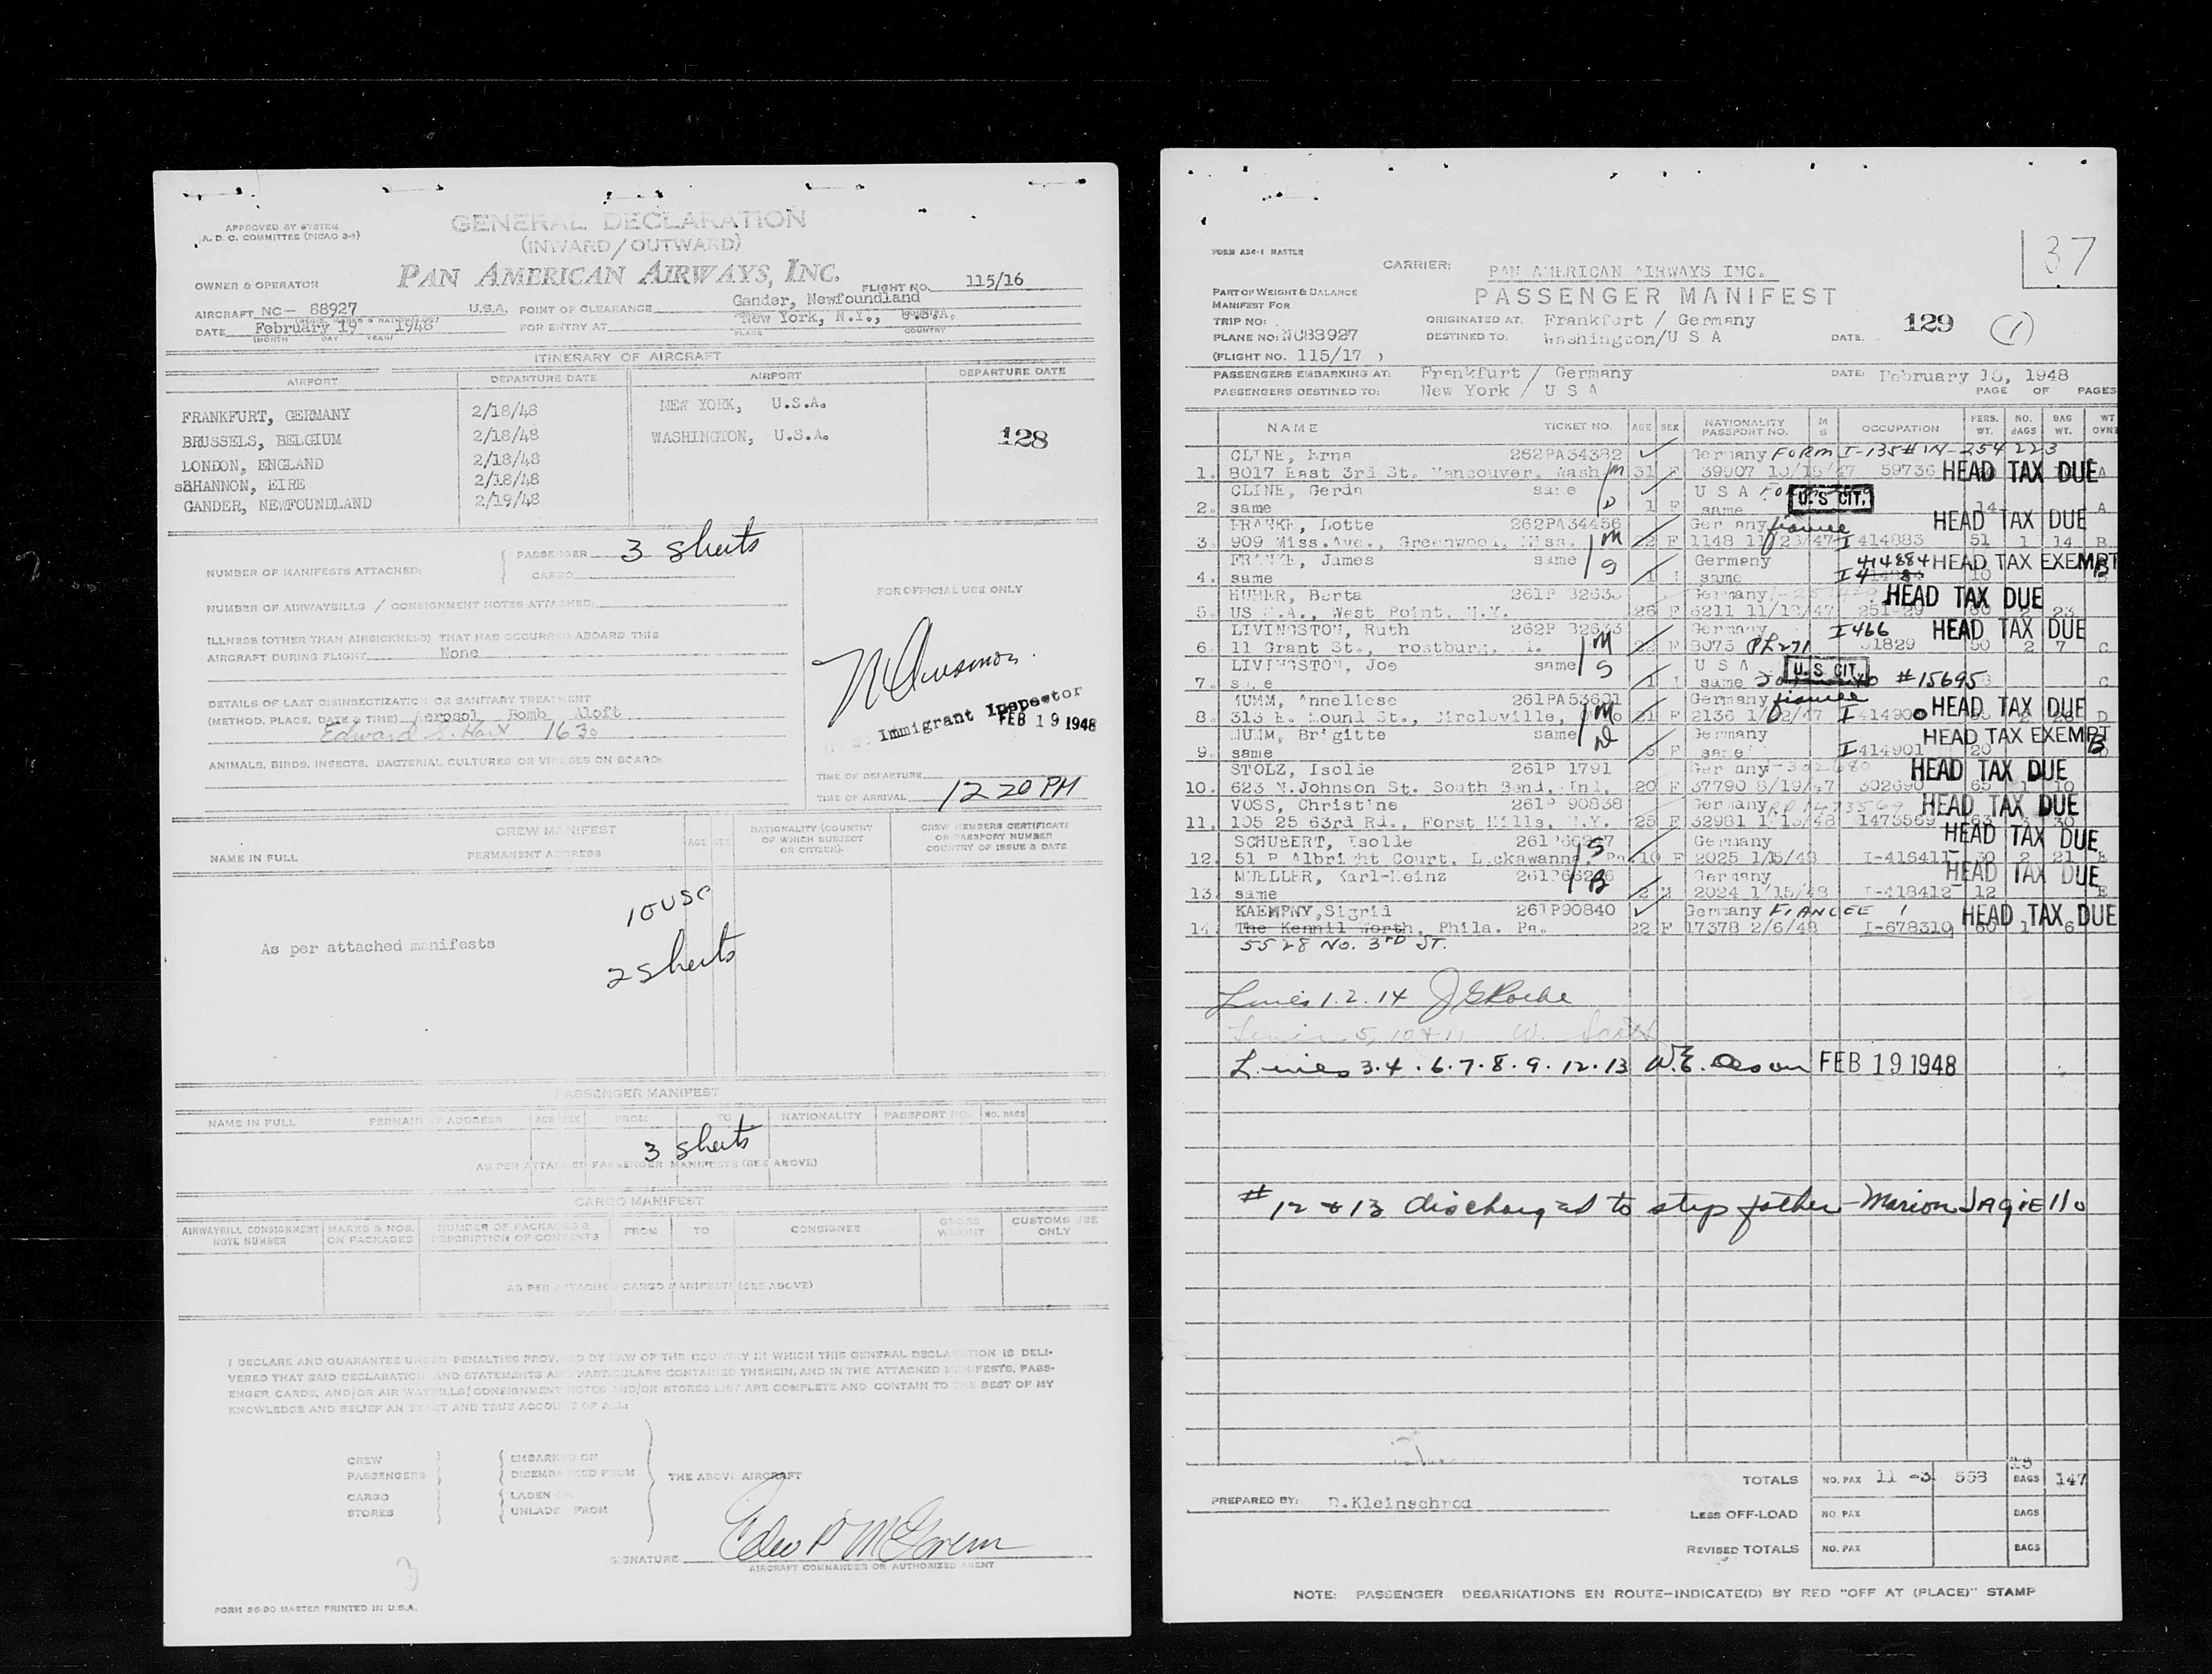 APPROVED BY SYSTEM
A. D. C. COMMITTEE (PICAO 3-1)
GENERAL DECLARATION
(INWARD/OUTWARD)
OWNER & OPERATOR
PAN AMERICAN AIRWAYS, INC.
FLIGHT NO. 115/16
AIRCRAFT NC- 88927 U.S.A. POINT OF CLEARANCE Gander, Newfoundland
DATE February 19 1948 FOR ENTRY AT New York, N.Y., U.S.A.
(MONTH DAY YEAR) PLACE COUNTRY
ITINERARY OF AIRCRAFT
AIRPORT DEPARTURE DATE AIRPORT DEPARTURE DATE
FRANKFURT, GERMANY 2/18/48 NEW YORK, U.S.A.
BRUSSELS, BELGIUM 2/18/48 WASHINGTON, U.S.A. 128
LONDON, ENGLAND 2/18/48
SHANNON, EIRE 2/18/48
GANDER, NEWFOUNDLAND 2/19/48
NUMBER OF MANIFESTS ATTACHED: PASSENGER 3 sheets
CARGO
NUMBER OF AIRWAYBILLS / CONSIGNMENT NOTES ATTACHED:
FOR OFFICIAL USE ONLY
ILLNESS (OTHER THAN AIRSICKNESS) THAT HAS OCCURRED ABOARD THIS
AIRCRAFT DURING FLIGHT None
DETAILS OF LAST DISINSECTIZATION OR SANITARY TREATMENT
(METHOD, PLACE, DATE & TIME) Aerosol Bomb Aloft
Edward S. Hart 1630
Immigrant Inspector
FEB 19 1948
ANIMALS, BIRDS, INSECTS, BACTERIAL CULTURES OR VIRUSES ON BOARD:
TIME OF DEPARTURE
TIME OF ARRIVAL 12 20 PM
CREW MANIFEST
NAME IN FULL PERMANENT ADDRESS AGE SEX NATIONALITY (COUNTRY OF WHICH SUBJECT OR CITIZEN). CREW MEMBERS CERTIFICATE OR PASSPORT NUMBER COUNTRY OF ISSUE & DATE
10 USC
As per attached manifests
2 sheets
PASSENGER MANIFEST
NAME IN FULL PERMANENT ADDRESS AGE SEX FROM TO NATIONALITY PASSPORT NO. NO. BAGS
3 sheets
AS PER ATTACHED PASSENGER MANIFESTS (SEE ABOVE)
CARGO MANIFEST
AIRWAYBILL CONSIGNMENT NOTE NUMBER MARKS & NOS. ON PACKAGES NUMBER OF PACKAGES & DESCRIPTION OF CONTENTS FROM TO CONSIGNEE GROSS WEIGHT CUSTOMS USE ONLY
AS PER ATTACHED CARGO MANIFESTS (SEE ABOVE)
I DECLARE AND GUARANTEE UNDER PENALTIES PROVIDED BY LAW OF THE COUNTRY IN WHICH THIS GENERAL DECLARATION IS DELI-
VERED THAT SAID DECLARATION AND STATEMENTS AND PARTICULARS CONTAINED THEREIN, AND IN THE ATTACHED MANIFESTS, PASS-
ENGER CARDS, AND/OR AIR WAYBILLS/CONSIGNMENT NOTES AND/OR STORES LIST ARE COMPLETE AND CONTAIN TO THE BEST OF MY
KNOWLEDGE AND BELIEF AN EXACT AND TRUE ACCOUNT OF ALL:
CREW EMBARKED ON
PASSENGERS DISEMBARKED FROM THE ABOVE AIRCRAFT
CARGO LADEN ON
STORES UNLADEN FROM
SIGNATURE
AIRCRAFT COMMANDER OR AUTHORIZED AGENT
3
FORM 36-90 MASTER PRINTED IN U.S.A.
37
FORM A36-1 MASTER
CARRIER: PAN AMERICAN AIRWAYS INC.
PART OF WEIGHT & BALANCE
MANIFEST FOR
PASSENGER MANIFEST
TRIP NO: ORIGINATED AT. Frankfurt / Germany 129 (1)
PLANE NO: NC88927 DESTINED TO: Washington/U S A DATE.
(FLIGHT NO. 115/17 )
PASSENGERS EMBARKING AT: Frankfurt / Germany DATE: February 18, 1948
PASSENGERS DESTINED TO: New York / U S A PAGE OF PAGES
NAME TICKET NO. AGE SEX NATIONALITY PASSPORT NO. M S OCCUPATION PERS. WT. NO. BAGS BAG WT. WT
CLINE, Erna 262PA34382 Germany FORM I-135 # IN-254223
1. 8017 East 3rd St. Vancouver, Wash M 31 F 39907 10/18/47 59736 HEAD TAX DUE A
CLINE, Gerda same U S A U.S CIT.
2. same 1 F same 14 A
FRANKE, Lotte 262PA34456 Germany fiancee HEAD TAX DUE
3. 909 Miss.Ave., Greenwood, Miss. M 22 F 1148 11/23/47 I 414883 51 1 14 B
FRANKE, James same S Germany 414884 HEAD TAX EXEMPT
4. same 1 same 10 B
HUBER, Berta 261P 32635 Germany HEAD TAX DUE
5. US M.A., West Point, N.Y. 26 F 6211 11/13/47 2 23
LIVINGSTON, Ruth 262P 32633 Germany I 466 HEAD TAX DUE
6. 11 Grant St., M 22 F 8075 PL271 50 2 7 C
LIVINGSTON, Joe same S U S A U.S CIT.
7. same 1 same #15695 C
MUMM, Anneliese 261PA53601 Germany fiancee HEAD TAX DUE
8. 313 E. Mound St., Circleville, Ohio M 21 F 2136 I 414900 D
MUMM, Brigitte same Germany HEAD TAX EXEMPT
9. same 3 F same I 414901 20 B
STOLZ, Isolie 261P 1791 Germany HEAD TAX DUE
10. 623 N.Johnson St. South Bend, Ind. 20 F 37790 8/19/47 302690 65 1 10
VOSS, Christine 261P 90838 Germany HEAD TAX DUE
11. 105 25 63rd Rd., Forst Hills, N.Y. 25 F 32981 1/13/48 1473569 63 30
SCHUBERT, Isolle Germany HEAD TAX DUE
12. 51 B Albright Court, Lackawanna, Pa. S 10 F 2025 1/15/48 I-418411 30 2 21 E
MUELLER, Karl-Heinz Germany HEAD TAX DUE
13. same 2 M 2024 1/15/48 I-418412 12 E
KAEMPNY, Sigrid 261P90840 Germany FIANCEE HEAD TAX DUE
14. The Kennil Worth, Phila. Pa. 22 F 17378 2/6/48 I-678310 60 1 6
5528 NO. 3RD ST.
Lines 1.2.14 J G Roche
Lines 5, 10 & 11 W.
Lines 3.4.6.7.8.9.12.13 W.E. Olson FEB 19 1948
#12 & 13 discharged to step father - Marion JAgiello
TOTALS NO. PAX 11 -3 558 BAGS 147
PREPARED BY: D.Kleinschrod
LESS OFF-LOAD NO. PAX BAGS
REVISED TOTALS NO. PAX BAGS
NOTE: PASSENGER DEBARKATIONS EN ROUTE-INDICATE(D) BY RED "OFF AT (PLACE)" STAMP